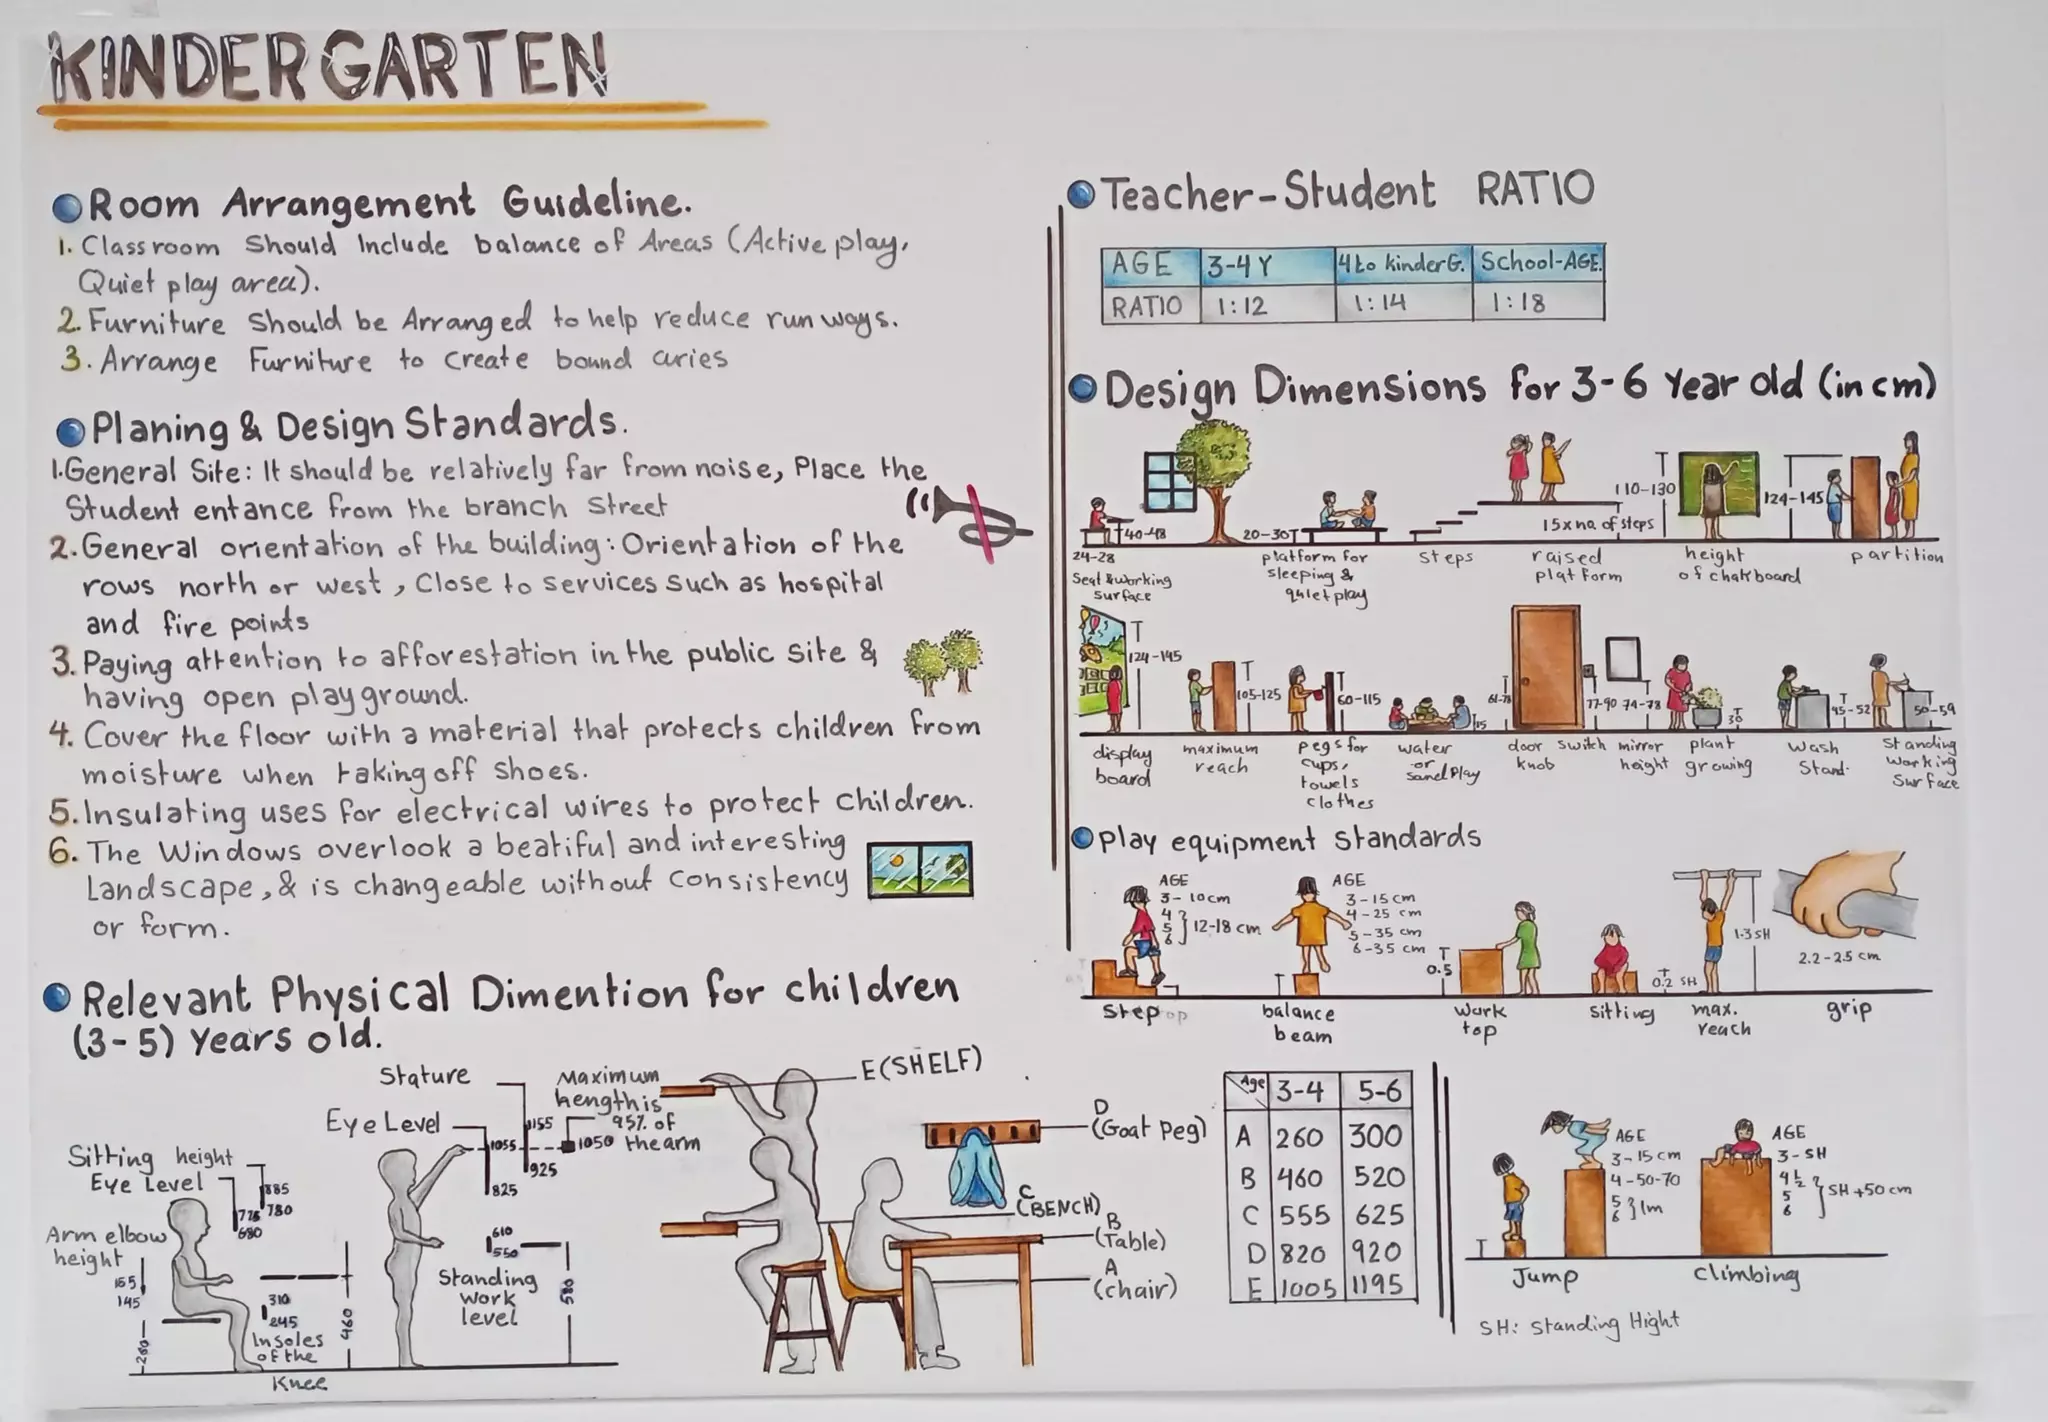 KINDERGARTEN
Room Arrangement Guideline.
1. Classroom Should Include balance of Areas (Active play,
Quiet play area).
2. Furniture Should be Arranged to help reduce run ways.
3. Arrange Furniture to create bound aries
Planing & Design Standards.
1. General Site: It should be relatively far from noise, Place the
Student entance from the branch Street
2. General orientation of the building: Orientation of the
rows north or west, Close to services such as hospital
and fire points
3. Paying attention to afforestation in the public site &
having open playground.
4. Cover the floor with a material that protects children from
moisture when taking off shoes.
5. Insulating uses for electrical wires to protect children.
6. The Windows overlook a beatiful and interesting
Landscape, & is changeable without consistency
or form.
Relevant Physical Dimention for children
(3-5) Years old.
Stature
Maximum
hength is
95% of
the arm
Eye Level
1155
1055
1050
925
825
Sitting height
Eye Level
885
780
775
680
Arm elbow
height
165
145
610
550
Standing
work
level
580
310
245
Insoles
of the
Knee
460
260
E (SHELF)
D
(Goat Peg)
C
(BENCH)
B
(Table)
A
(chair)
Age 3-4 5-6
A 260 300
B 460 520
C 555 625
D 820 920
E 1005 1195
Teacher-Student RATIO
AGE 3-4 Y 4 to kinder G. School-AGE.
RATIO 1:12 1:14 1:18
Design Dimensions for 3-6 Year old (in cm)
40-48
24-28
Seat & working
surface
20-30
platform for
sleeping &
quiet play
steps
15 x no. of steps
raised
platform
110-130
height
of chalkboard
124-145
partition
124-145
display
board
105-125
maximum
reach
60-115
pegs for
cups,
towels
clothes
15
water
or
sand play
door
knob
77-90
switch
74-78
mirror
height
30
plant
growing
45-52
Wash
Stand.
50-59
Standing
Working
Surface
Play equipment standards
AGE
3- 10cm
4
5
6
12-18 cm
Step
AGE
3-15 cm
4-25 cm
5-35 cm
6-35 cm
balance
beam
0.5
Work
top
Sitting
0.2 SH
1.3 SH
max.
reach
2.2-2.5 cm
grip
AGE
3-15 cm
4-50-70
5
6
1m
Jump
AGE
3-SH
4 1/2
5
6
SH +50 cm
Climbing
SH: Standing Hight